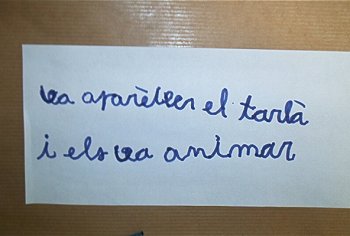 va aparèixer el tarlà
i els va animar